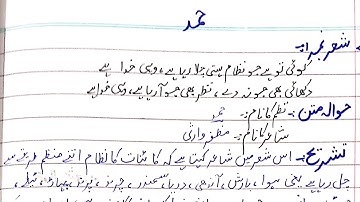 حمد
شعر نمبر 1:-
کوئی تو ہے جو نظام ہستی چلا رہا ہے، وہی خدا ہے
دکھائی بھی جو نہ دے، نظر بھی جو آ رہا ہے، وہی خدا ہے
حوالہ متن:- نظم کا نام:- حمد
شاعر کا نام:- مظفر وارثی
تشریح:- اس شعر میں شاعر کہتا ہے کہ کائنات کا نظام اتنے منظم طریقے سے
چل رہا ہے یعنی ہوا، بارش، آندھی، دریا، سمندر، چرند، پرند، پہاڑ، ٹیلے،